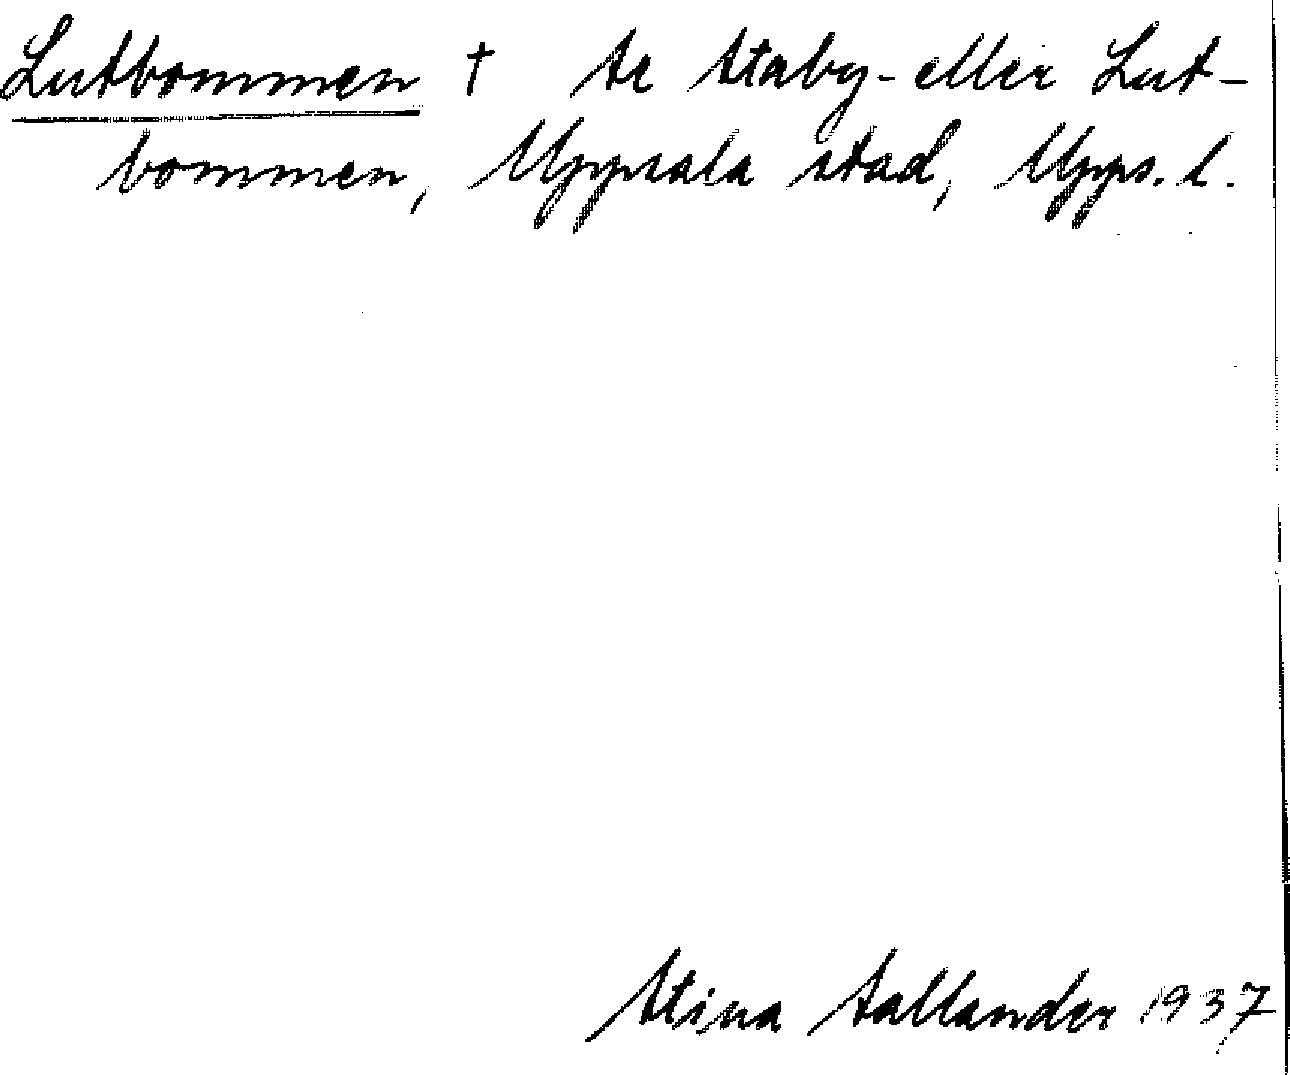 Lutbommen † Se Staby- eller Lut-
bommen, Uppsala stad, Upps. l.
Stina Sallander 1937